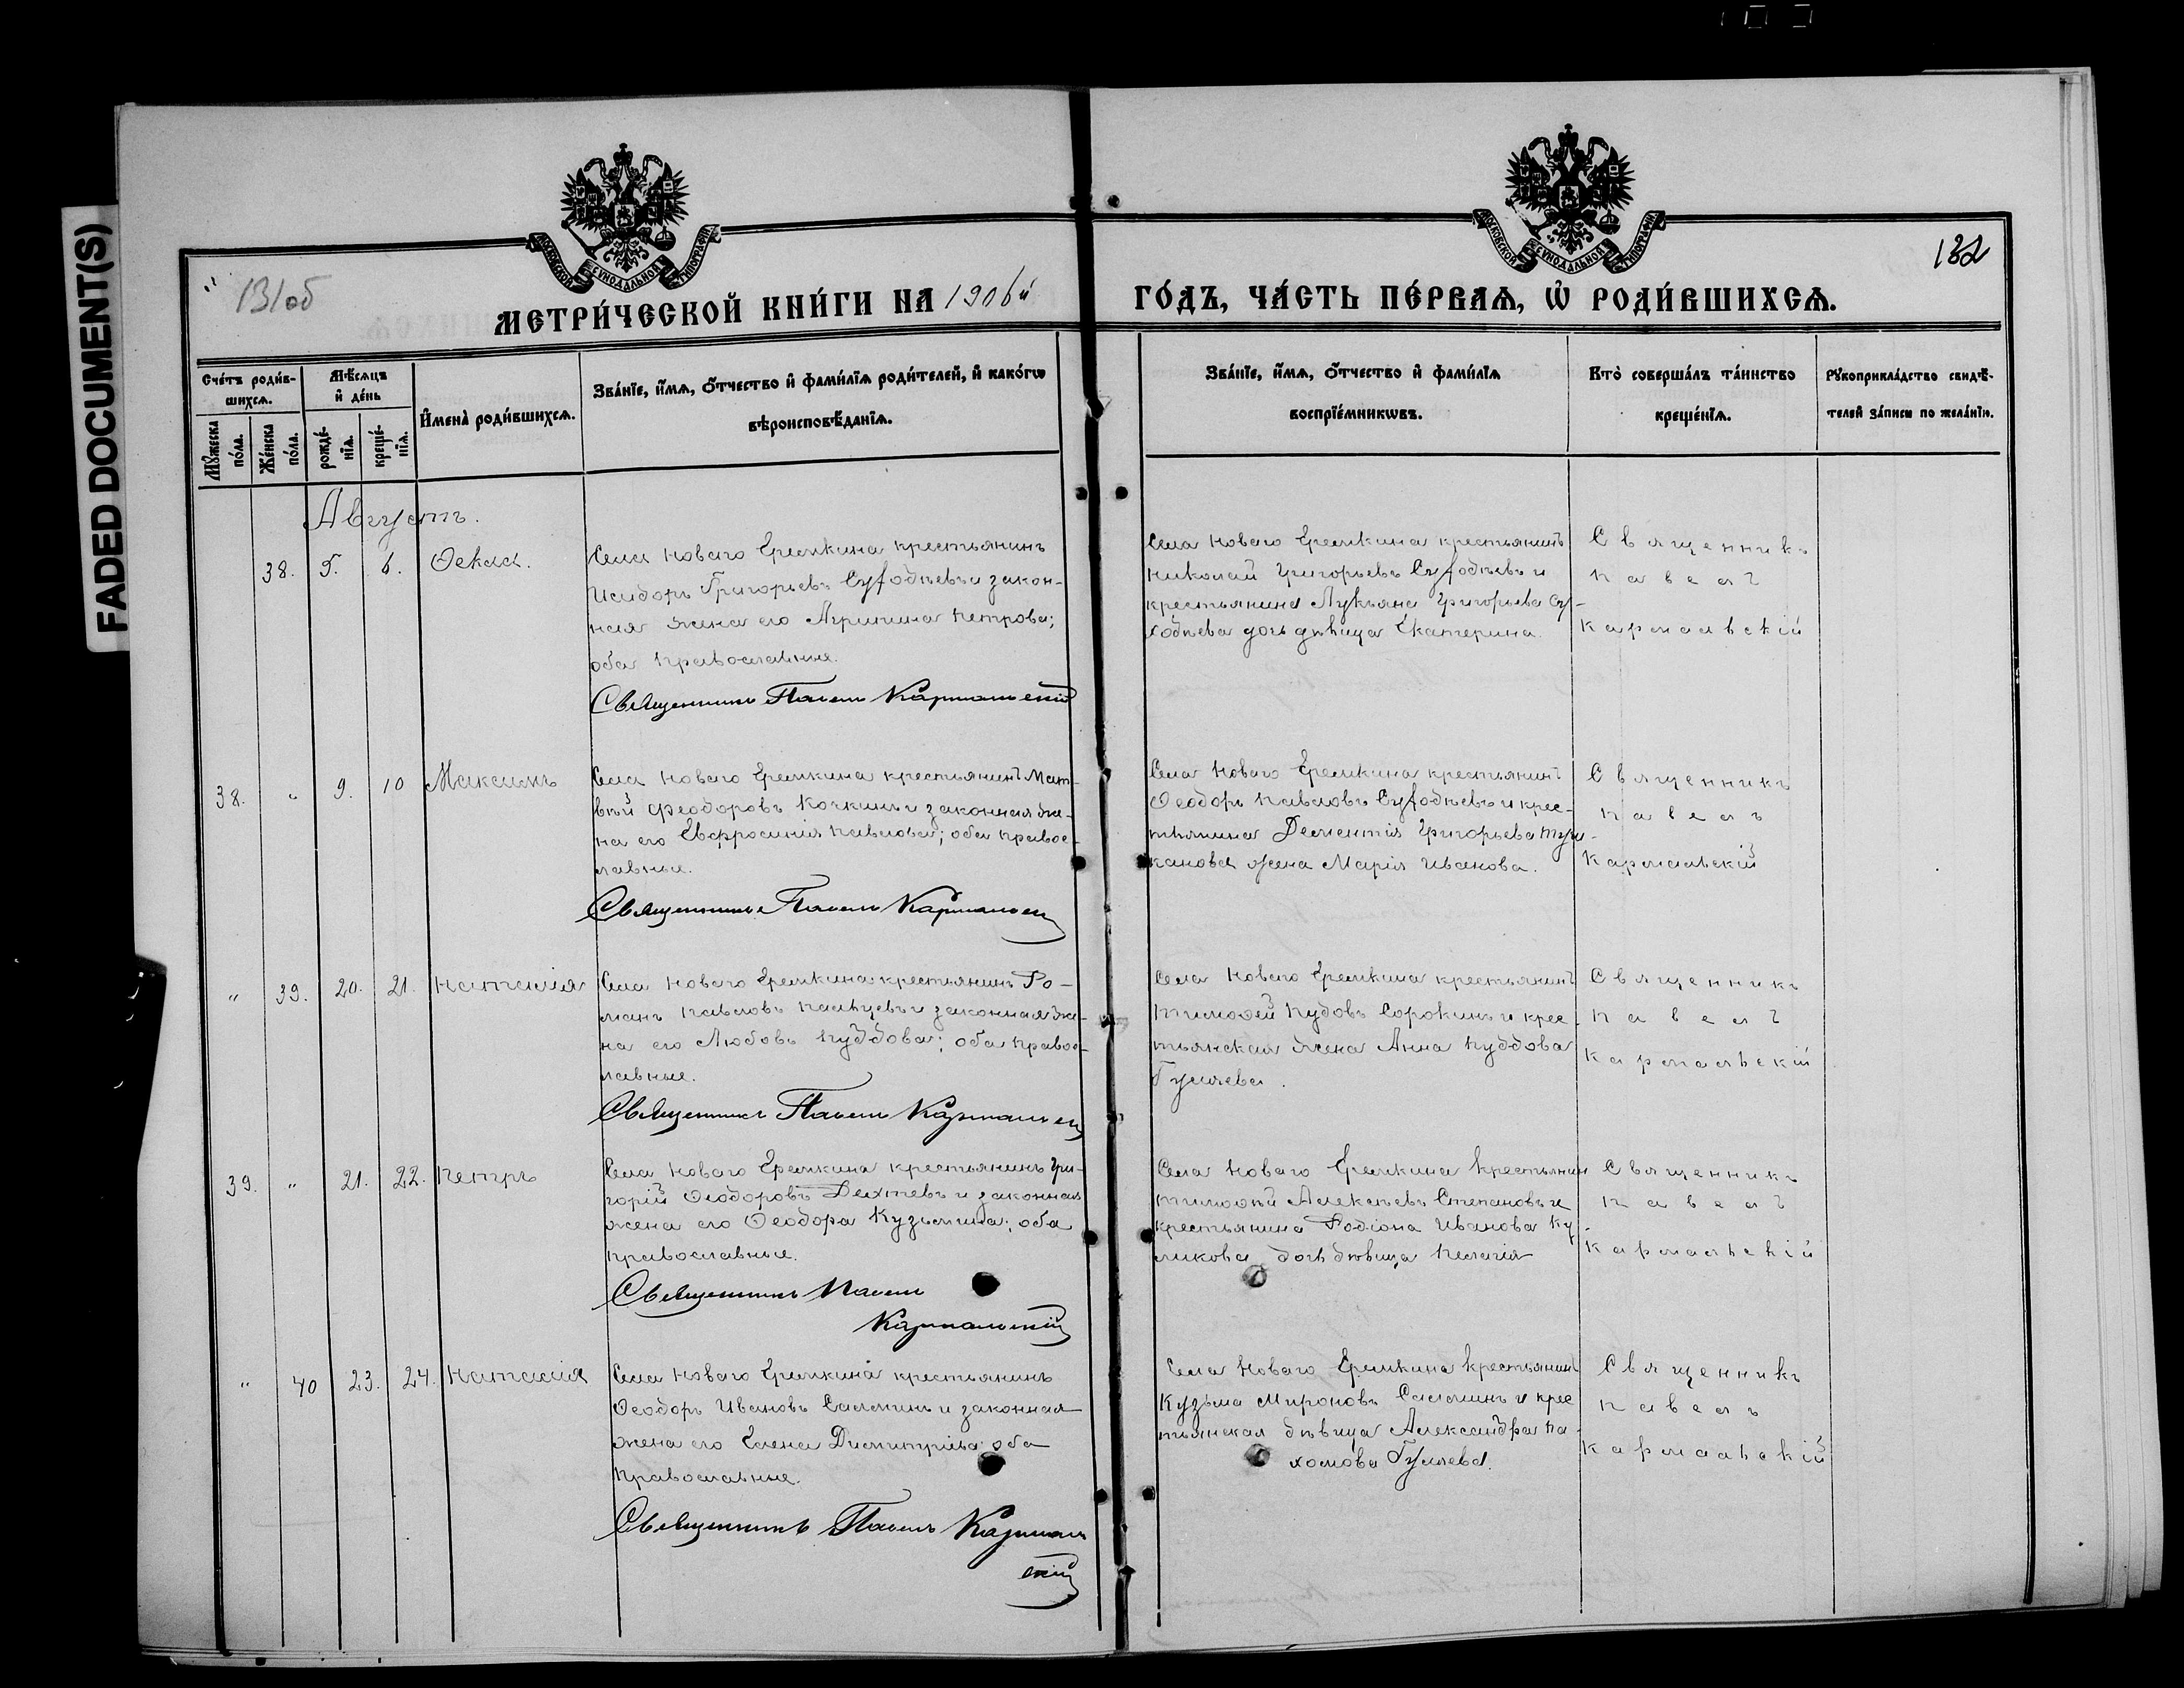 FADED DOCUMENT(S)
МОСКОВСКОЙ СѴНОДАЛЬНОЙ ТИПОГРАФІИ
МОСКОВСКОЙ СѴНОДАЛЬНОЙ ТИПОГРАФІИ
131об
132
МЕТРИ́ЧЕСКОЙ КНИ́ГИ НА 1906й
ГО́ДЪ, ЧА́СТЬ ПЕ́РВАѦ, Ѡ҆ РОДИ́ВШИХСѦ.
Сче́тъ роди́в-
шихсѧ.
Мꙋ́жеска
по́ла.
Же́нска
по́ла.
Мѣ́сѧцъ
и҆ де́нь
рожде́-
нїѧ.
креще́-
нїѧ.
И҆мена̀ роди́вшихсѧ.
Зва́нїе, и҆́мѧ, ѻ҆́тчество и҆ фами́лїѧ роди́телей, и҆ како́гѡ
вѣроисповѣ́данїѧ.
Зва́нїе, и҆́мѧ, ѻ҆́тчество и҆ фами́лїѧ
воспрїе́мникѡвъ.
Кто̀ соверша́лъ та́инство
креще́нїѧ.
Рꙋкоприкла́дство свидѣ́-
телей за́писи по жела́нїю.
Августъ.
38. 5. 6. Ѳекла.
Села Новаго Еремкина крестьянинъ
Исидоръ Григорьевъ Суходѣевъ и закон-
ная жена его Агрипина Петрова;
оба православные.
Священникъ Павелъ Кармальскій
Села Новаго Еремкина крестьянинъ
Николай Григорьевъ Суходѣевъ и
крестьянина Лукьяна Григорьева Су-
ходѣева дочь дѣвица Екатерина.
Священникъ
Павелъ
Кармальскій
38. " 9. 10 Максимъ
Села Новаго Еремкина крестьянинъ Мат-
вѣй Феодоровъ Кочкинъ и законная же-
на его Евфросинія Павлова; оба правос-
лавные.
Священникъ Павелъ Кармальскій
Села Новаго Еремкина крестьянинъ
Ѳеодоръ Павловъ Суходѣевъ и крес-
тьянина Дементія Григорьева Ту-
канова жена Марія Иванова.
Священникъ
Павелъ
Кармальскій
" 39. 20. 21. Наталія
Села Новаго Еремкина крестьянинъ Ро-
манъ Павловъ и законная же-
на его Любовь Пуддова; оба правос-
лавные.
Священникъ Павелъ Кармальскій
Села Новаго Еремкина крестьянинъ
Тимоѳей Пудовъ Сорокинъ и крес-
тьянская жена Анна Пуддова
Гуляева.
Священникъ
Павелъ
Кармальскій
39. " 21. 22. Петръ
Села Новаго Еремкина крестьянинъ Гри-
горій Ѳеодоровъ и законная
жена его Ѳеодора Кузьмина; оба
православные.
Священникъ Павелъ
Кармальскій
Села Новаго Еремкина крестьянин
Тимоѳей Алексѣевъ Степановъ и
крестьянина Родіона Иванова Ку-
ликова дочь дѣвица Пелагія
Священникъ
Павелъ
Кармальскій
" 40 23. 24. Наталія
Села Новаго Еремкина крестьянинъ
Ѳеодоръ Ивановъ Салминъ и законная
жена его Елена Димитріева оба
православные.
Священникъ Павелъ Кармаль
скій
Села Новаго Еремкина крестьянинъ
Кузьма Мироновъ Салминъ и крес
тьянская дѣвица Александра Па-
хомова Гуляева.
Священникъ
Павелъ
Кармальскій